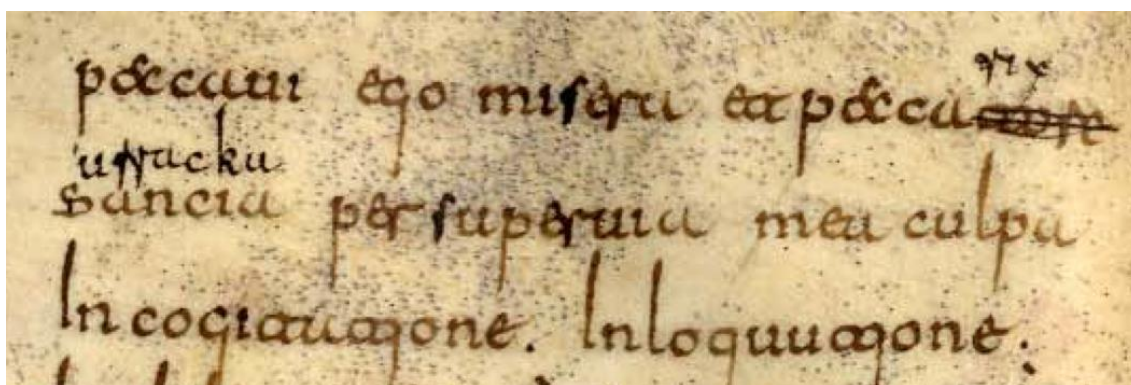 trix
peccaui ego misera et pecca tor
urracka
Sancia per superuia mea culpa
In cogitatione. In loquutione.